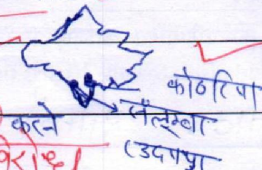 कोठारिया
सलूम्बर
करने
(उदयपुर
विरोध।